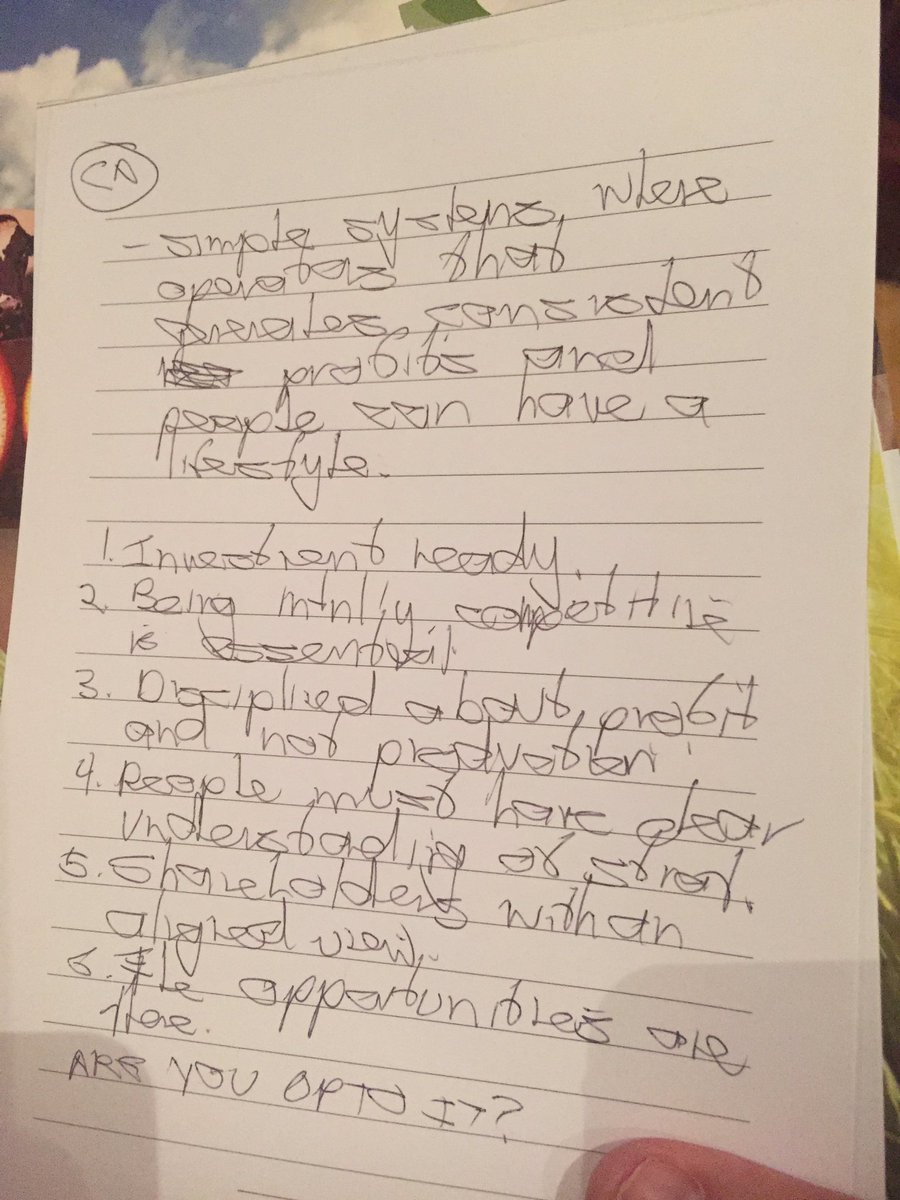 CA
- simple systems, where
operators that
generates consistent
profits and
people can have a
lifestyle.
1. Investment ready.
2. Being mtnlly competitive
is essential.
3. Disciplined about profit
and not production
4. People must have clear
understanding of strat.
5. Shareholders with an
aligned view.
6. The opportunities are
there.
ARE YOU OPTO IT?